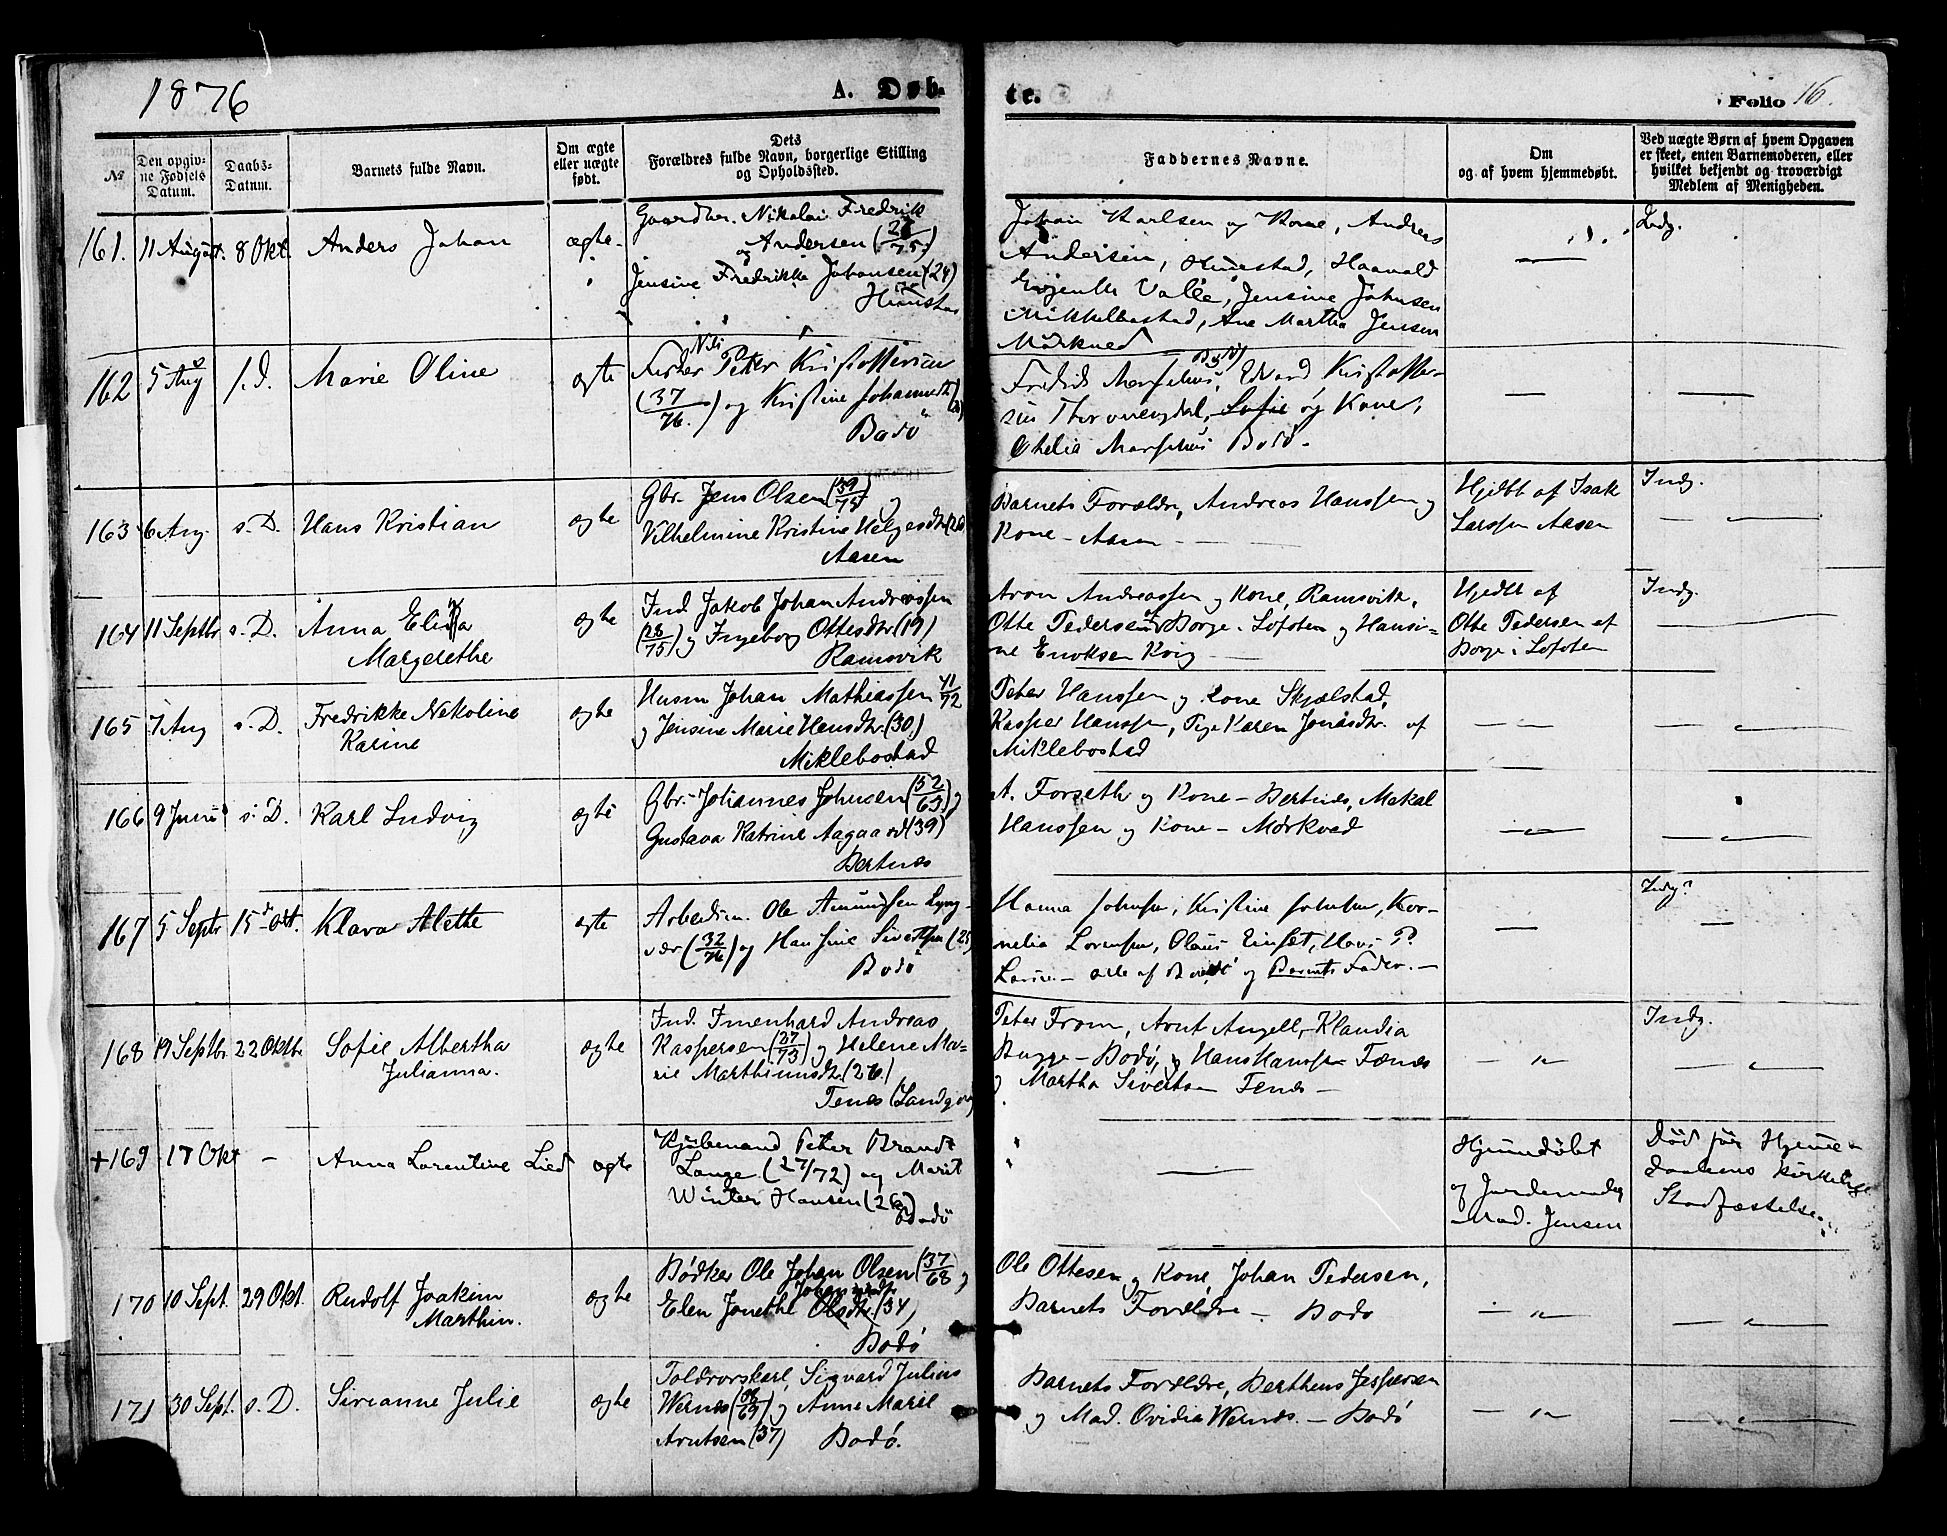 1876
A. Døb-
te.
Folio 16.
№
Den opgiv-
ne Fødsels
Datum.
Daabs-
Datum.
Barnets fulde Navn.
Om ægte
eller uægte
født.
Dets
Forældres fulde Navn, borgerlige Stilling
og Opholdssted.
Faddernes Navne.
Om
og af hvem hjemmedøbt.
Ved uægte Børn af hvem Opgaven
er skeet, enten Barnemoderen, eller
hvilket bekjendt og troværdigt
Medlem af Menigheden.
161. 11 August. 8 Okt. Anders Johan ægte
Gaardbr. Nikolai Fredrik
og Andersen (28/75)
Jensine Fredrikke Johansen (24)
Johan Karlsen og Kone, Andreas
Andersen, Haavald
Evjenth Valle, Jensine Johnsen
Mikkelbostad, Ane Martha Jensen
Mørkved
Indg.
162 5 Aug s. D. Marie Oline ægte
Peter Kristoffersen
(37/76.) og Kristine
Bodø
Edvard Kristoffer-
sen og Kone,
Bodø
163 6 Aug. s. D. Hans Kristian ægte
Gbr. Jens Olsen (39/75) og
Vilhelmine Kristine Helgesdtr (26)
Aasen
Barnets Forældre, Andreas Hanssen og
Kone - Aasen
Hjdbt af Isak
Larssen Aasen
Indg.
164 11 Septbr s. D. Anna Elisa
Margerethe
ægte
Ind. Jakob Johan Andreassen
(28/75) og Ingeborg Ottesdtr (19)
Ramsvik
Aron Andreassen og Kone, Ramsvik,
Otte Pedersen af Borge i Lofoten og Hansi-
ne Enoksen
Hjdbt af
Otte Pedersen af
Borge i Lofoten
Indg.
165 7 Aug s. D. Fredrikke Nekoline
Karine
ægte
Husm Johan Mathiassen 41/72
og Jensine Marie Hansdtr. (30)
Miklebostad
Peter Hanssen og Kone Skjælstad,
Kasper Hanssen, Pige Karen Jonasdtr. af
Miklebostad
166 9 Juni s. D. Karl Ludvig ægte
Gbr. Johannes Johnsen (52/63) og
Gustava Katrine Aagaard (39)
Bertnes
A. Forseth og Kone - Bertnes, Mekal
Hanssen og Kone - Mørkved
167 5 Septr 15de Okt. Klara Alette ægte
Arbeidsm. Ole Amundsen Lyng-
vær (32/76) og Hansine Sivertsen (25)
Bodø
Hanna Johnsen, Kristine Johnsen, Kor-
nelia Lorensen, Olaus Einset, Hans P.
alle af Bodø og Barnets Fader. -
Indg.
168 19 Septbr 22 Oktbr Sofie Albertha
Julianna.
ægte
Ind. Imenhard Andreas
Kaspersen (27/73) og Helene Ma-
rie Marthinusdtr (26)
Tenes (Landgode)
Peter From, Arnt Angell, Klaudia
Bugge - Bodø, og Hans Hanssen Fænes
og Martha Sivertsen Fenes -
Indg.
+169 17 Okt - Anna Lorentine Lied ægte
Kjøbmand Peter Brandt
Lange (27/72) og Marit
Winter Hansen (26)
Bodø
Hjemmedøbt
af Jordemoder
Mad. Jensen
Død før Hjemme-
daabens kirkelige
Stadfæstelse.
170 10 Sept. 29 Okt. Rudolf Joakim
Marthin.
ægte
Bødker Ole Johan Olsen (37/68) og
Elen Jonette Olsdtr. (34)
Bodø
Ole Ottesen og Kone, Johan Pedersen,
Barnets Forældre - Bodø
171 30 Sept. s. D. Sirianne Julie ægte
Toldrorskarl Sigvard Julius
Wernes og Anne Marie
Arntsen (37) Bodø.
Barnets Forældre, Bertheus Jespersen
og Mad. Ovidia Wernes. - Bodø